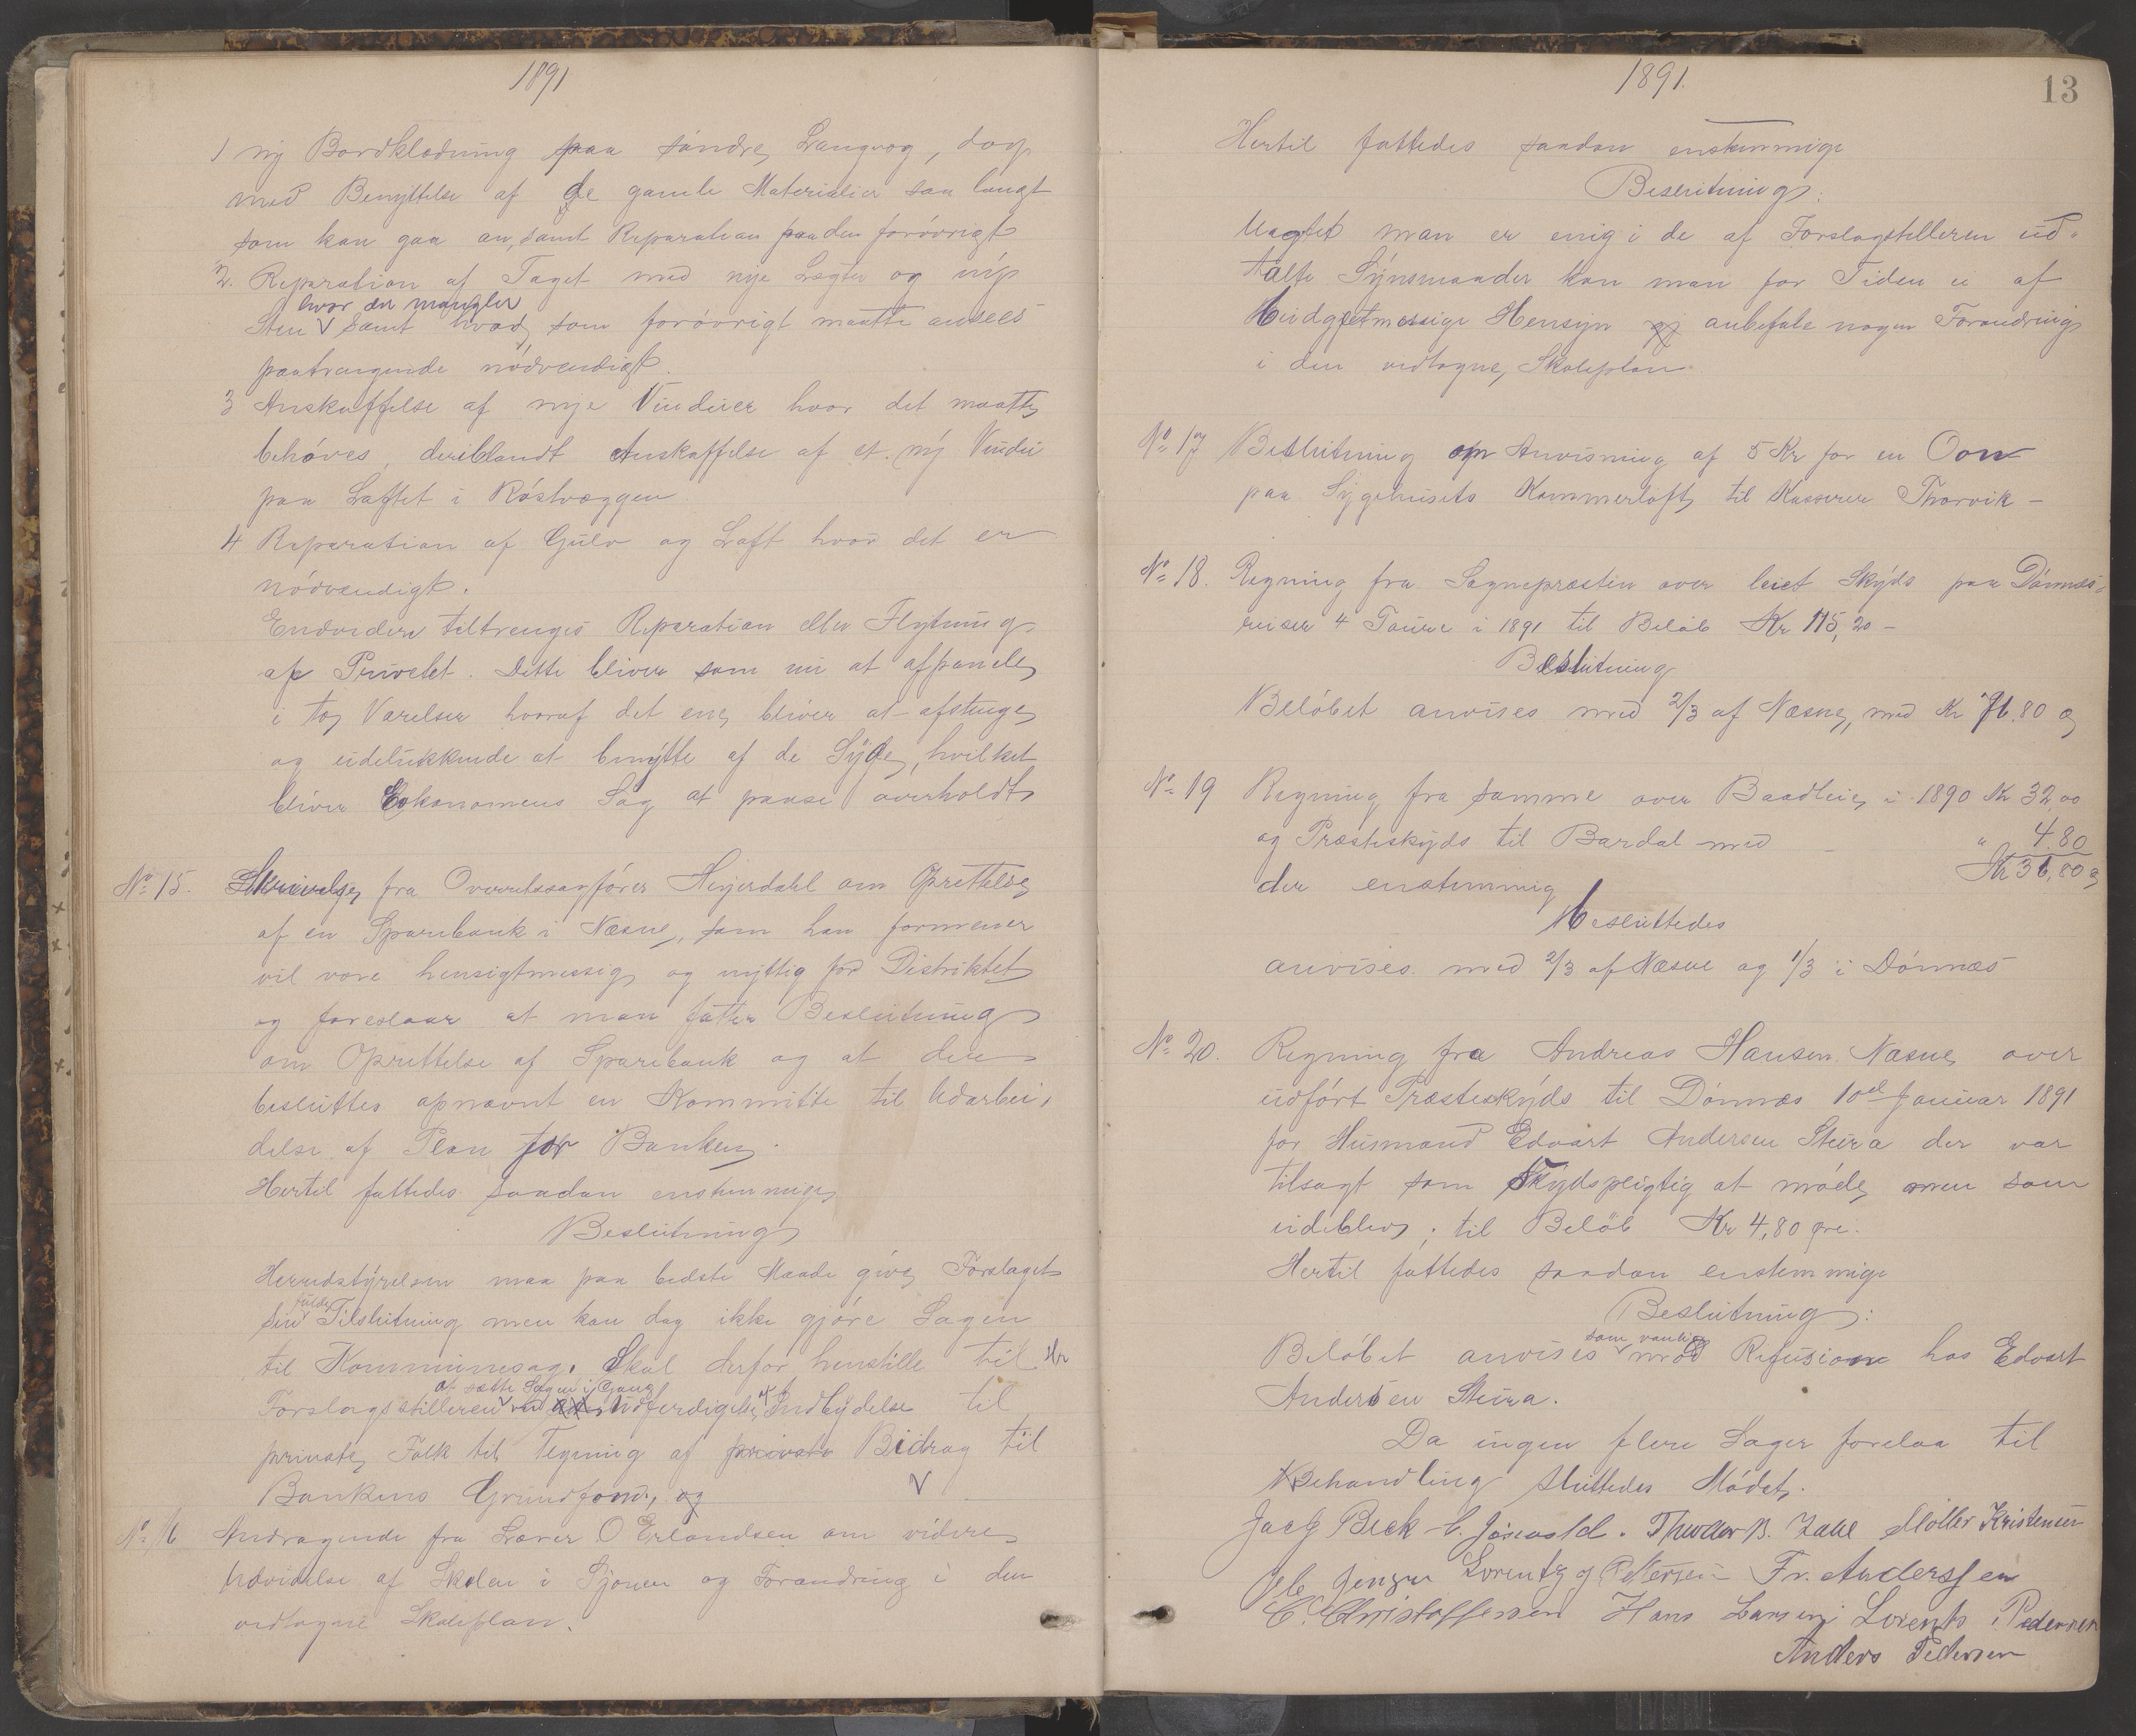 1891
1 ny Bordklædning paa søndre Langvæg, dog
med Benyttelse af de gamle Materialier saa langt
som kan gaa an, samt Reparation paa den forøvrigt
2. Reparation af Taget med nye Lægter og
hvor der mangler
Sten samt hvad som forøvrigt maatte ansees
paatrængende nødvendigt.
3 Anskaffelse af nye Vinduer hvor det maatte
behøves, deriblandt Anskaffelse af et ny Vindu
paa Loftet i Røstvæggen
4 Reparation af Gulv og Loft hvor det er
nødvendigt.
Endvidere tiltrenges Reparation eller Flytning
af Privetet. Dette bliver som nu at afpanele
i to Værelser hvoraf det ene bliver at afstenge
og udelukkende at benytte af de Syge, hvilket
bliver Eokonomens Sag at paase overholdt
No 15. Skrivelse fra Overretssagfører Heyerdahl om Oprettelse
af en Sparebank i Næsne, som han formener
vil være hensigtmessig og nyttig for Distriktet
og foreslaar at man fatter Beslutning
om Oprettelse af Sparebank og at der
besluttes opnævnt en Kommitte til Udarbei,
delse af Plan for Banken.
Hertil fattedes saadan enstemmige
Beslutning
Herredstyrelsen maa paa bedste Maade give Forslaget
fulde
sin Tilslutning men kan dog ikke gjøre Sagen
til Kommunesag. Skal derfor henstille til Hr
at sætte Sagen i Gang
Forslagsstilleren ved Udferdigelse af Indbydelse til
private Folk til Tegning af private Bidrag til
Bankens Grundfond, og
No 16 Andragende fra Lærer O Erlandsen om videre
Udvidelse af Skolen i Sjonen og Forandring i den
vedtagne Skoleplan.
1891.
13
Hertil fattedes saadan enstemmige
Beslutning:
Uagtet man er enig i de af Forslagstilleren ud-
talte Synsmaader kan man for Tiden ei af
budgetmessige Hensyn anbefale nogen Forandring
i den vedtagne Skoleplan.
No 17 Beslutning om Anvisning af 5 Kr for en Oon
paa Sygehusets Kammerloft til Kasserer Thorvik -
No 18. Regning fra Sognepræsten over leiet Skyds paa Dønnæs-
reiser 4 Toure i 1891 til Beløb Kr 115,20 -
Beslutning
Beløbet anvises med 2/3 af Næsne, med Kr 76.80 ø
No 19 Regning fra samme over Baadleie i 1890 Kr 32,00
og Præsteskyds til Bardal med - " 4.80
der enstemmig Kr 36,80 ø
besluttedes
anvises med 2/3 af Næsne og 1/3 i Dønnæs
No 20. Regning fra Andreas Hansen Næsne over
udført Præsteskyds til Dønnæs 10de Januar 1891
for Husmand Edvart Andersen Steira der var
tilsagt som Skydspligtig at møde, men som
udeblev; til Beløb Kr 4,80 øre.
Hertil fattedes saadan enstemmige
Beslutning:
som vanlig
Beløbet anvises mod Refusion hos Edvart
Andersen Steira.
Da ingen flere Sager forelaa til
Behandling sluttedes Mødet.
Jacg Beck C. Theodor B. Zahl Møller Kristensen
Jensen Lorentz Pettersen Fr. Anderssen
C. Christoffersen Hans Larsen Lorents Pedersen
Anders Pedersen